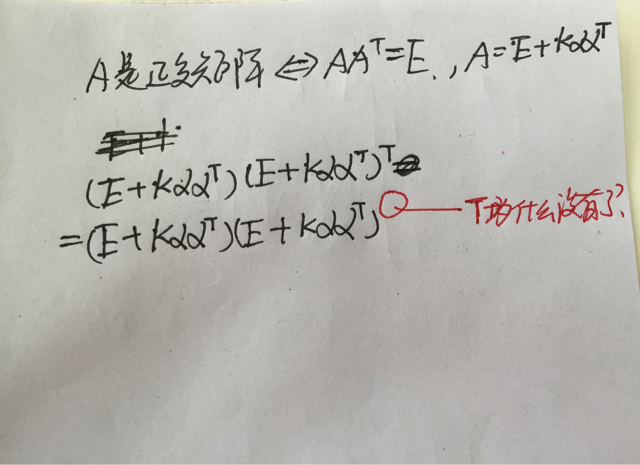 A是正交矩阵 ⇔ AAᵀ=E., A=E+kααᵀ
(E+kααᵀ)(E+kααᵀ)ᵀ
=(E+kααᵀ)(E+kααᵀ) T为什么没有了?